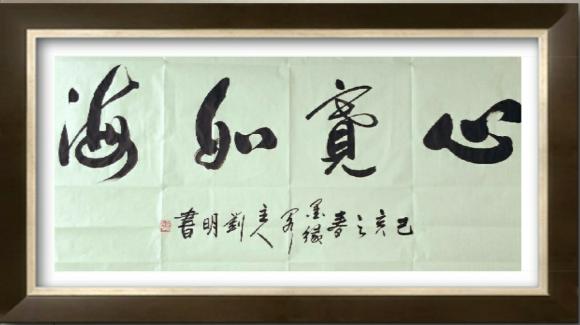 心寬如海
己亥之春墨緣軒主人劉明書